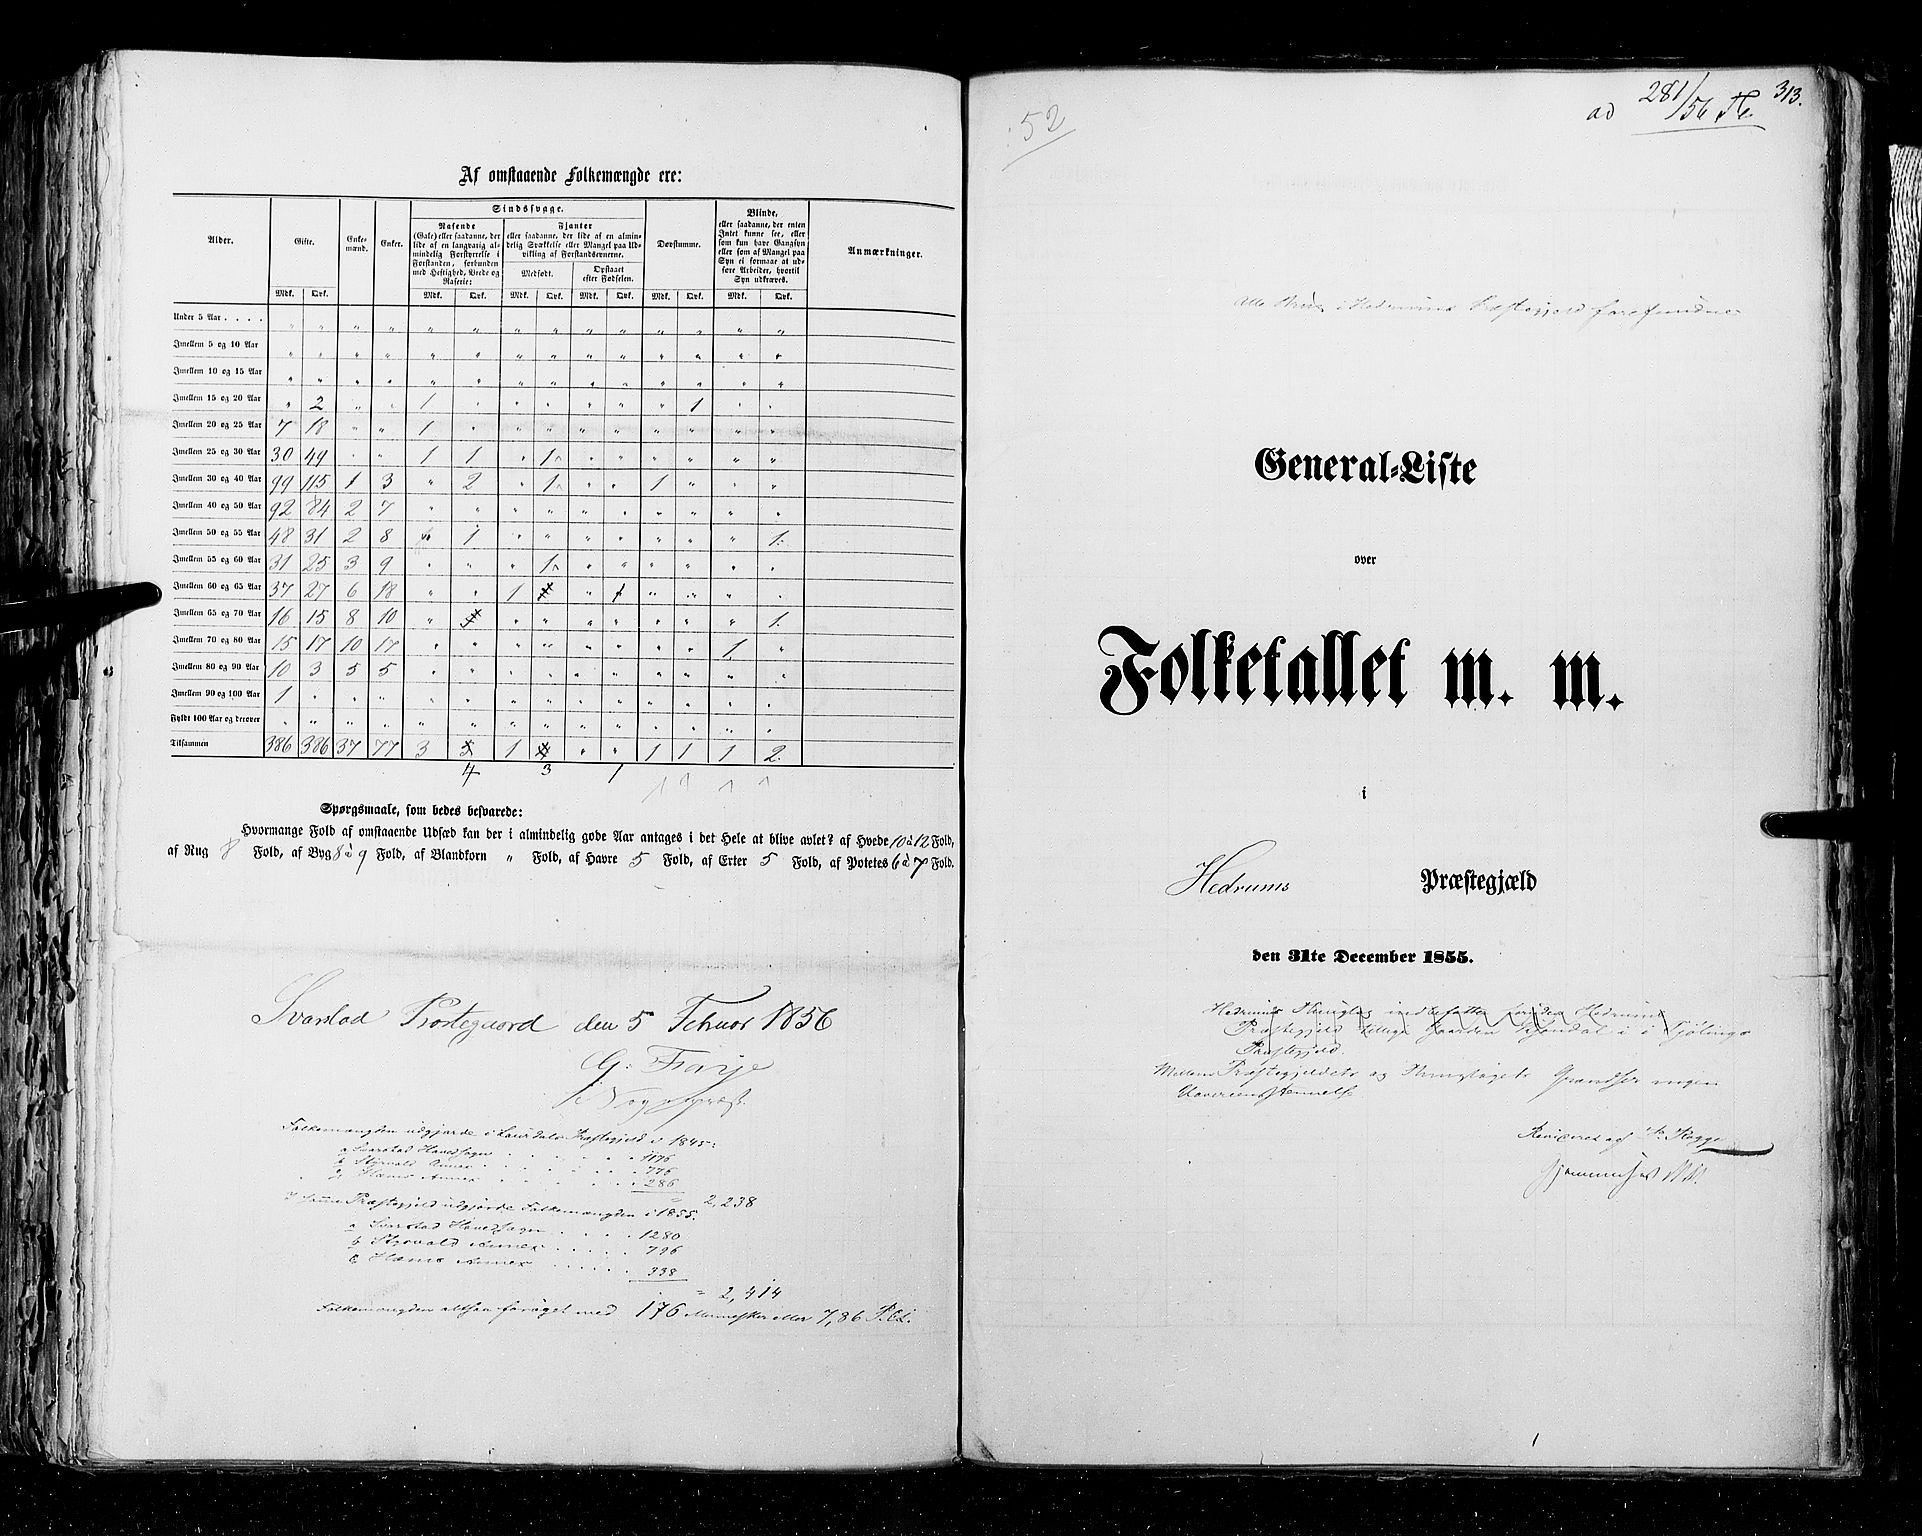 Af omstaaende Folkemængde ere:
Alder.
Gifte.
Enke-
mænd.
Enker.
Sindssvage.
Rasende
(Gale) eller saadanne, der
lide af en langvarig al-
mindelig Forstyrrelse i
Forstanden, forbunden
med Heftighed, Vrede og
Raserie:
Fjanter
eller saadanne, der lide af en almin-
delig Svækkelse eller Mangel paa Ud-
vikling af Forstandsevnerne.
Medfødt.
Opstaaet
efter Fødselen.
Døvstumme.
Blinde,
eller saadanne, der enten
Intet kunne see, eller
som kun have Gangsyn
eller som af Mangel paa
Syn ei formaae at ud-
føre Arbeider, hvortil
Syn udkræves.
Anmærkninger.
Mdk. Qvk. Mdk. Qvk. Mdk. Qvk. Mdk. Qvk. Mdk. Qvk. Mdk. Qvk.
Under 5 Aar . . . . " " " " " " " " " " " " " "
Imellem 5 og 10 Aar " " " " " " " " " " " " " "
Imellem 10 og 15 Aar " " " " " " " " " " " " " "
Imellem 15 og 20 Aar " 2 " " 1 " " " " " " 1 " "
Imellem 20 og 25 Aar 7 18 " " 1 " " " " " " " " "
Imellem 25 og 30 Aar 30 49 " " 1 1 " 1 " " " " " "
Imellem 30 og 40 Aar 99 115 1 3 " 2 " 1 " " 1 " " "
Imellem 40 og 50 Aar 92 84 2 7 " " " " " " " " " "
Imellem 50 og 55 Aar 48 31 2 8 " 1 " " " " " " " 1.
Imellem 55 og 60 Aar 31 25 3 9 " " " 1 " " " " " "
Imellem 60 og 65 Aar 37 27 6 18 " " 1 " 1 " " " "
Imellem 65 og 70 Aar 16 15 8 10 " " " " " " " " 1.
Imellem 70 og 80 Aar 15 17 10 17 " " " " " " " " 1. "
Imellem 80 og 90 Aar 10 3 5 5 " " " " " " " " " "
Imellem 90 og 100 Aar 1 " " " " " " " " " " " " "
Fyldt 100 Aar og derover " " " " " " " " " " " " " "
Tilsammen 386 386 37 77 3 1 " " 1 1 1 2.
4 3 1
Spørgsmaale, som bedes besvarede:
Hvormange Fold af omstaaende Udsæd kan der i almindelig gode Aar antages i det Hele at blive avlet? af Hvede 10 à 12 Fold,
af Rug 8 Fold, af Byg 8 à 9 Fold, af Blandkorn " Fold, af Havre 5 Fold, af Erter 5 Fold, af Potetes 6 à 7 Fold.
Svarstad Præstegaard den 5 Februar 1856
G.
Sognepræst.
Folkemængden udgjorde i Laurdals Præstegjeld i 1845:
a Svarstad Hovedsogn . . . . . . 1176
b Styrvold Annex . . . . . . 776
c Hems Annex . . . . . . 286
" 2,238
I samme Præstegjeld udgjorde Folkemængden i 1855.
a Svarstad Hovedsogn . . . . 1280
b Styrvold Annex . . . . . 796
c Hems Annex . . . . . . 338
" 2,414
Folkemængden altsaa forøget med 176 Mennesker eller 7,86 P.Ct.
52
ad 281/56
313.
Alle i Hedrums Præstegjeld forefundne
General-Liste
over
Folketallet m. m.
i
Hedrums Præstegjæld
den 31te December 1855.
Hedrums Thinglag indbefatter foruden Hedrums
Præstegjeld tillige Gaarden i Tjølings
Præstegjeld.
Mellem Præstegjeldets og Thinglagets Grændser ingen
Uoverensstemmelse
Revideret af